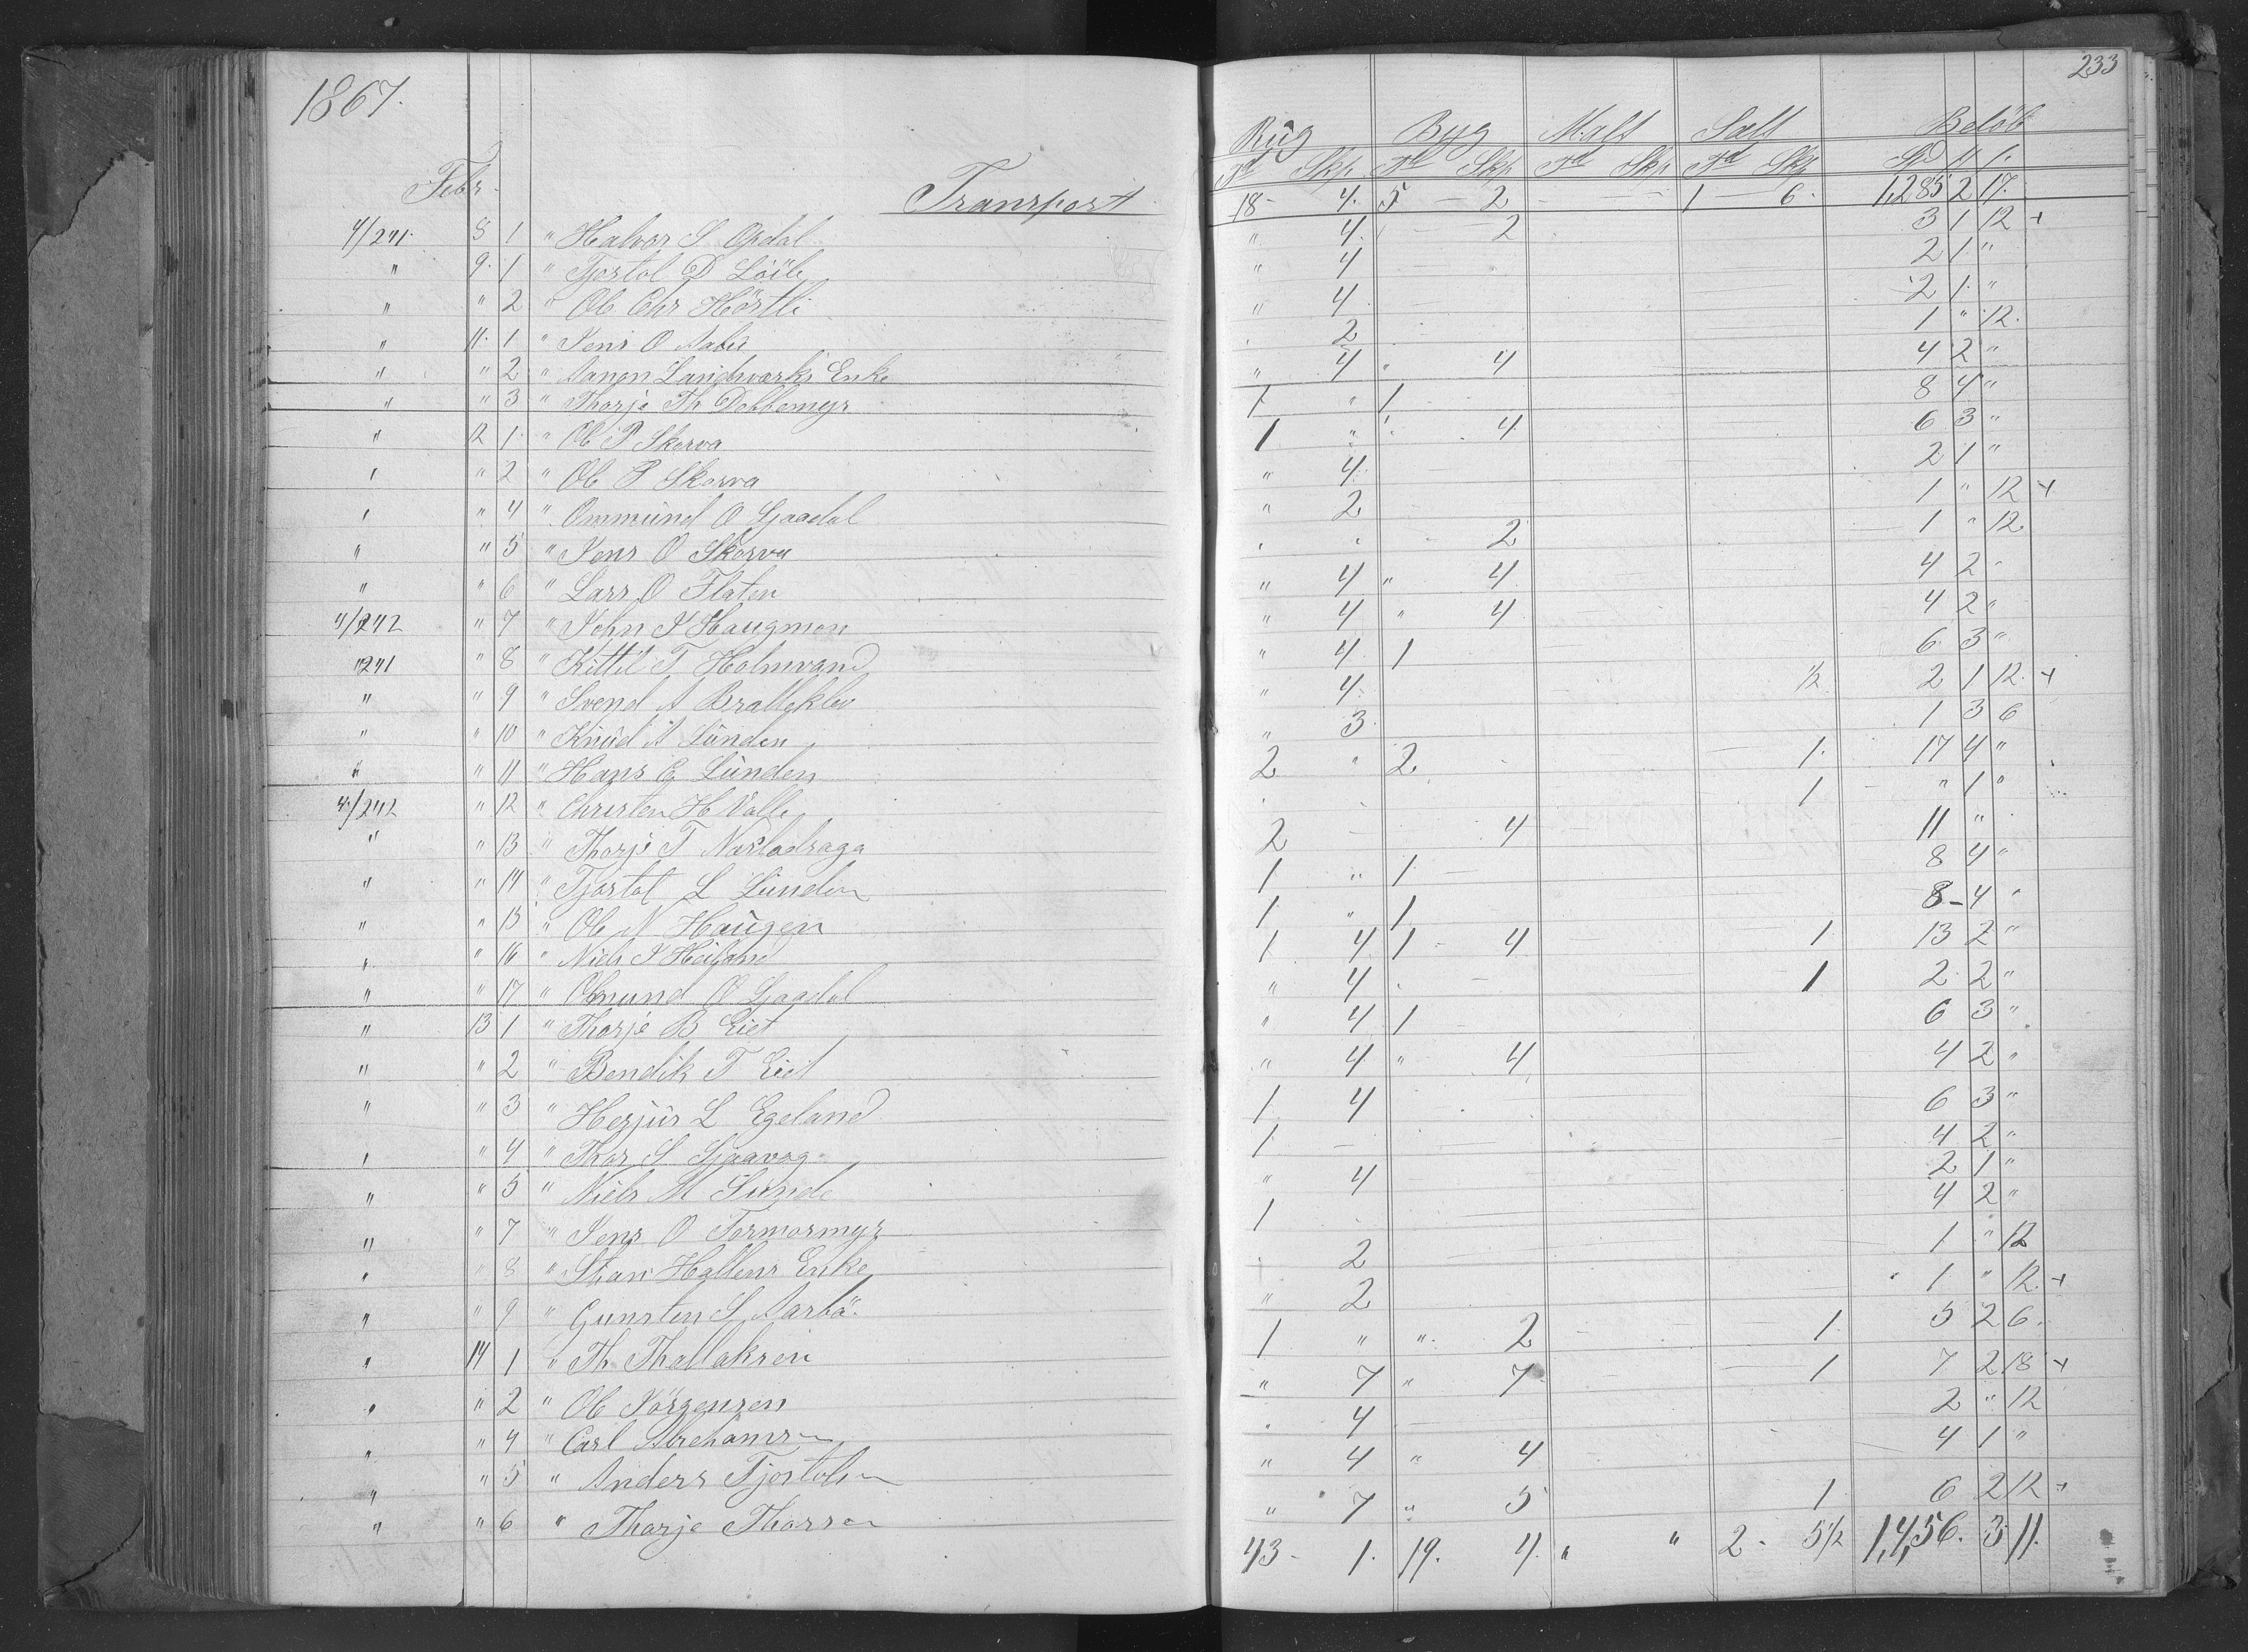 1867.
233
Rug Byg Malt Salt Beløb
Febr. Td Skp Td Skp Td Skp Td Skp
Transport 18 - 4. 5 - 2 - - 1 - 6. 1,285 2 17.
4/241. 8 1 " Halvor S Opdal " 4. - 2 3 1 12 +
" 9. 1 " Tjostol D Löite " 4 2 1 "
" " 2 " Ole Chr Hörtli " 4 2 1. "
" 11. 1 " Jens O Aabu . 2 1 " 12.
" " 2 " Aanon Landsværks Enke " 4 " 4 4 2 "
" " 3 " Thorje Th Dobbemyr 1 " 1 8 4 "
" 12 1 " Ole P Skorva 1 " " 4 6 3 "
" " 2 " Ole P Skorva " 4. 2 1 "
" " 4 " Ommund O Ljaadal " 2 1 " 12 +
" " 5 " Jens O Skorva . . - 2 1 " 12
" " 6 " Lars O Flaten " 4 " 4 4 2 "
4/242 " 7 " John J Haugmon " 4 " 4 4 2 "
"241 " 8 " Kittil T Holmvand " 4. 1 6 3 "
" " 9 " Svend A Bratteklev " 4. 1/2 2 1 12. +
" " 10 " Knud A Lunden " 3. 1 3 6
" " 11 " Hans G Lunden 2 " 2 1. 17 4 "
4/242 " 12 " Christen H Valle . 1 " 1 "
" " 13 " Thorje T Næsladraga 2 - 4 11 "
" " 14 " Tjostol L Lunden 1 " 1. 8 4 "
" " 15 " Ole N Haugen 1. " 1 8 - 4 "
" " 16 " Niels J Heiland 1 4 1 - 4 1 13 2 "
" " 17 " Omund O Ljaadal " 4 . 1 2 2 "
" 13 1 " Thorje B Eiet " 4 1 6 3 "
" " 2 " Bendik T Eiet " 4 " 4 4 2 "
" " 3 " Herjus L Egeland 1 4 6 3 "
" " 4 " Thor S Sjaavaag 1 - 4 2 "
" " 5 " Niels M Sunde " 4 2 1 "
" " 7 " Jens O Tormormyr 1 . 4 2 "
" " 8 " Hallens Enke . 2 1 " 12
" " 9 " Gunsten S Aarbö " 2 1 " 12. +
" 14 1 " Th Thollaksen 1 " " 2 1. 5 2 6.
" " 2 " Ole Jörgensen " 7 " 7 1 7 2 18 +
" " 4 " Carl Abrehamsen . 4 2 " 12
" " 5 " Anders Tjostolsen " 4 " 4 4 1 "
" " 6 " Thorje Thorsen " 7 " 5 1 6 2 12 +
43 - 1. 19. 4. " " 2 - 5 1/2 1,456. 3 11.